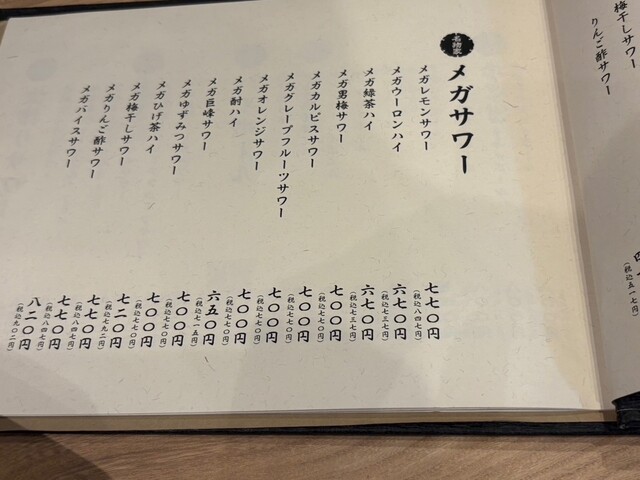 梅干しサワー
りんご酢サワー
(税込五一七円)
メガサワー
メガレモンサワー 七七〇円
(税込八四七円)
メガウーロンハイ 六七〇円
(税込七三七円)
メガ緑茶ハイ 六七〇円
(税込七三七円)
メガ男梅サワー 七〇〇円
(税込七七〇円)
メガカルピスサワー 七〇〇円
(税込七七〇円)
メガグレープフルーツサワー 七〇〇円
(税込七七〇円)
メガオレンジサワー 七〇〇円
(税込七七〇円)
メガ酎ハイ 六五〇円
(税込七一五円)
メガ巨峰サワー 七〇〇円
(税込七七〇円)
メガゆずみつサワー 七〇〇円
(税込七七〇円)
メガひげ茶ハイ 七二〇円
(税込七九二円)
メガ梅干しサワー 七七〇円
(税込八四七円)
メガりんご酢サワー 七七〇円
(税込八四七円)
メガバイスサワー 八二〇円
(税込九〇二円)